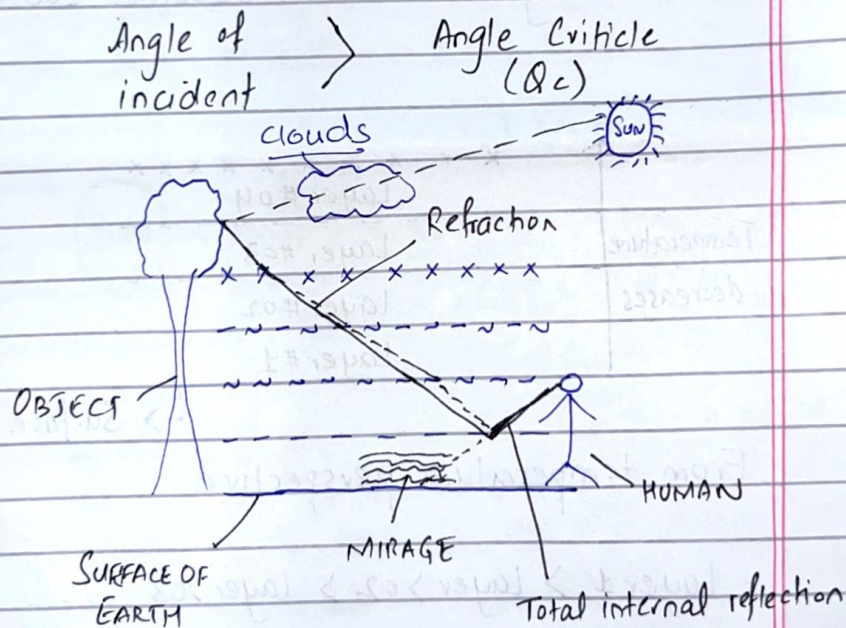 Angle of incident > Angle Criticle (Qc)
clouds
SUN
Refraction
x x x x x x x x x
OBJECT
HUMAN
MIRAGE
SURFACE OF
EARTH
Total internal reflection